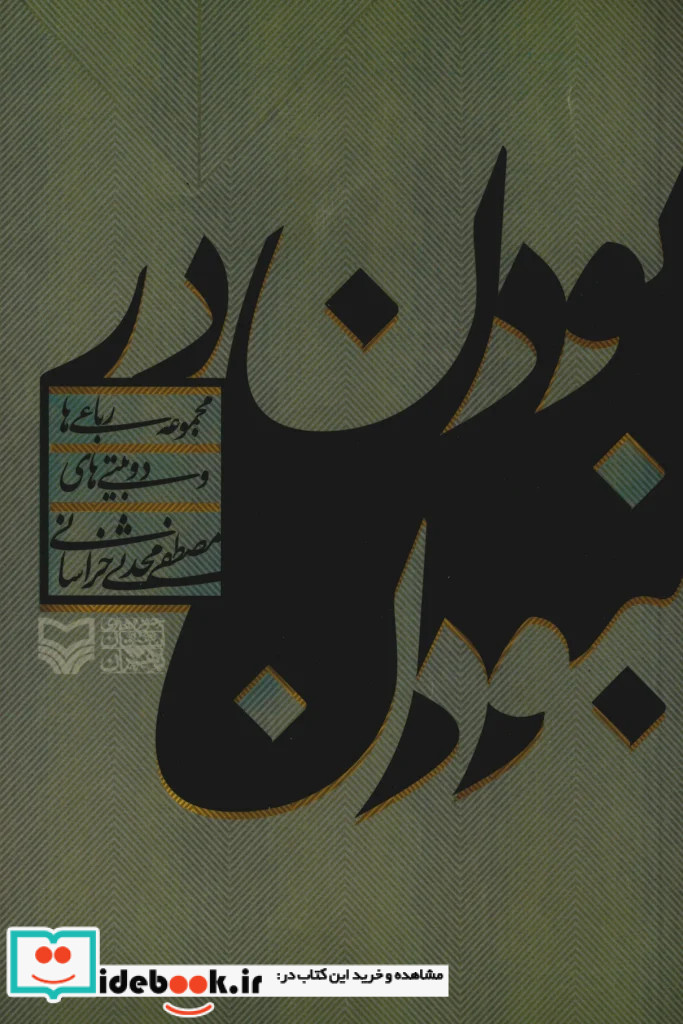 بودن در
نبودن
مجموعه رباعی‌ها
و دوبیتی‌های
مصطفی محدثی خراسانی
مشاهده و خرید این کتاب در:
idebook.ir